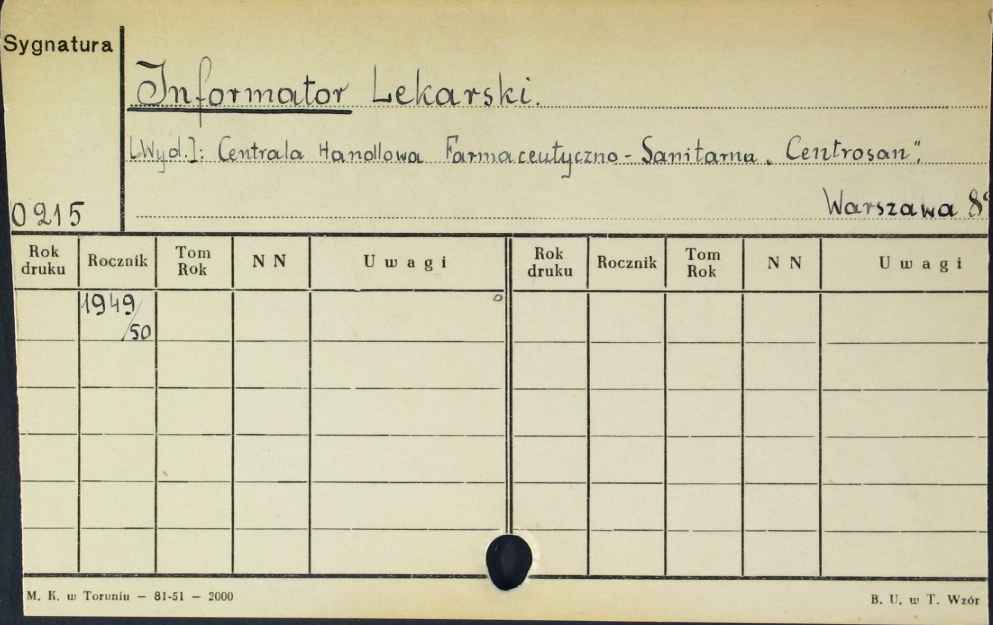 Sygnatura
Informator Lekarski.
[Wyd.]: Centrala Handlowa Farmaceutyczno-Sanitarna „Centrosan",
0215
Warszawa 8°
Rok druku Rocznik Tom Rok N N Uwagi Rok druku Rocznik Tom Rok N N Uwagi
1949
/50
M. K. w Toruniu — 81-51 — 2000
B. U. w T. Wzór